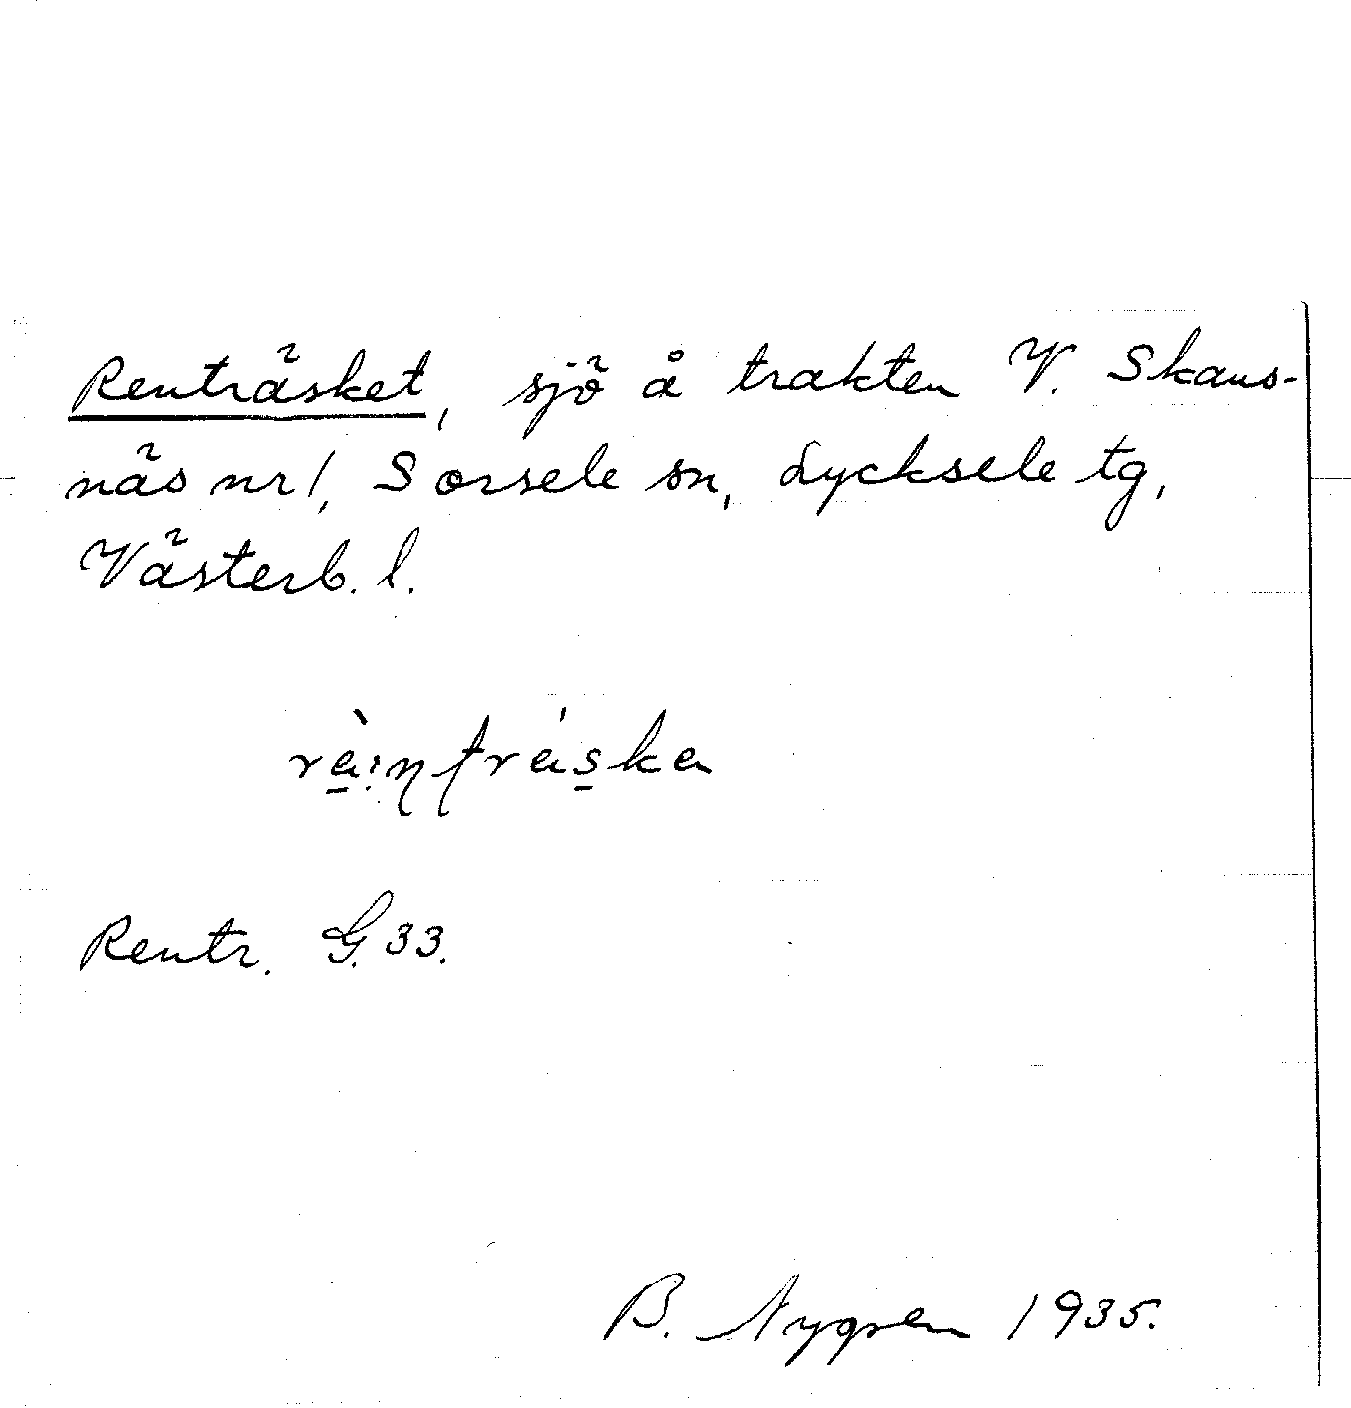 Renträsket, sjö å trakten V. Skans-
näs nr 1, Sorsele sn, Lycksele tg,
Västerb. l.
Rentr. G. 33.
B. Nygren 1935.